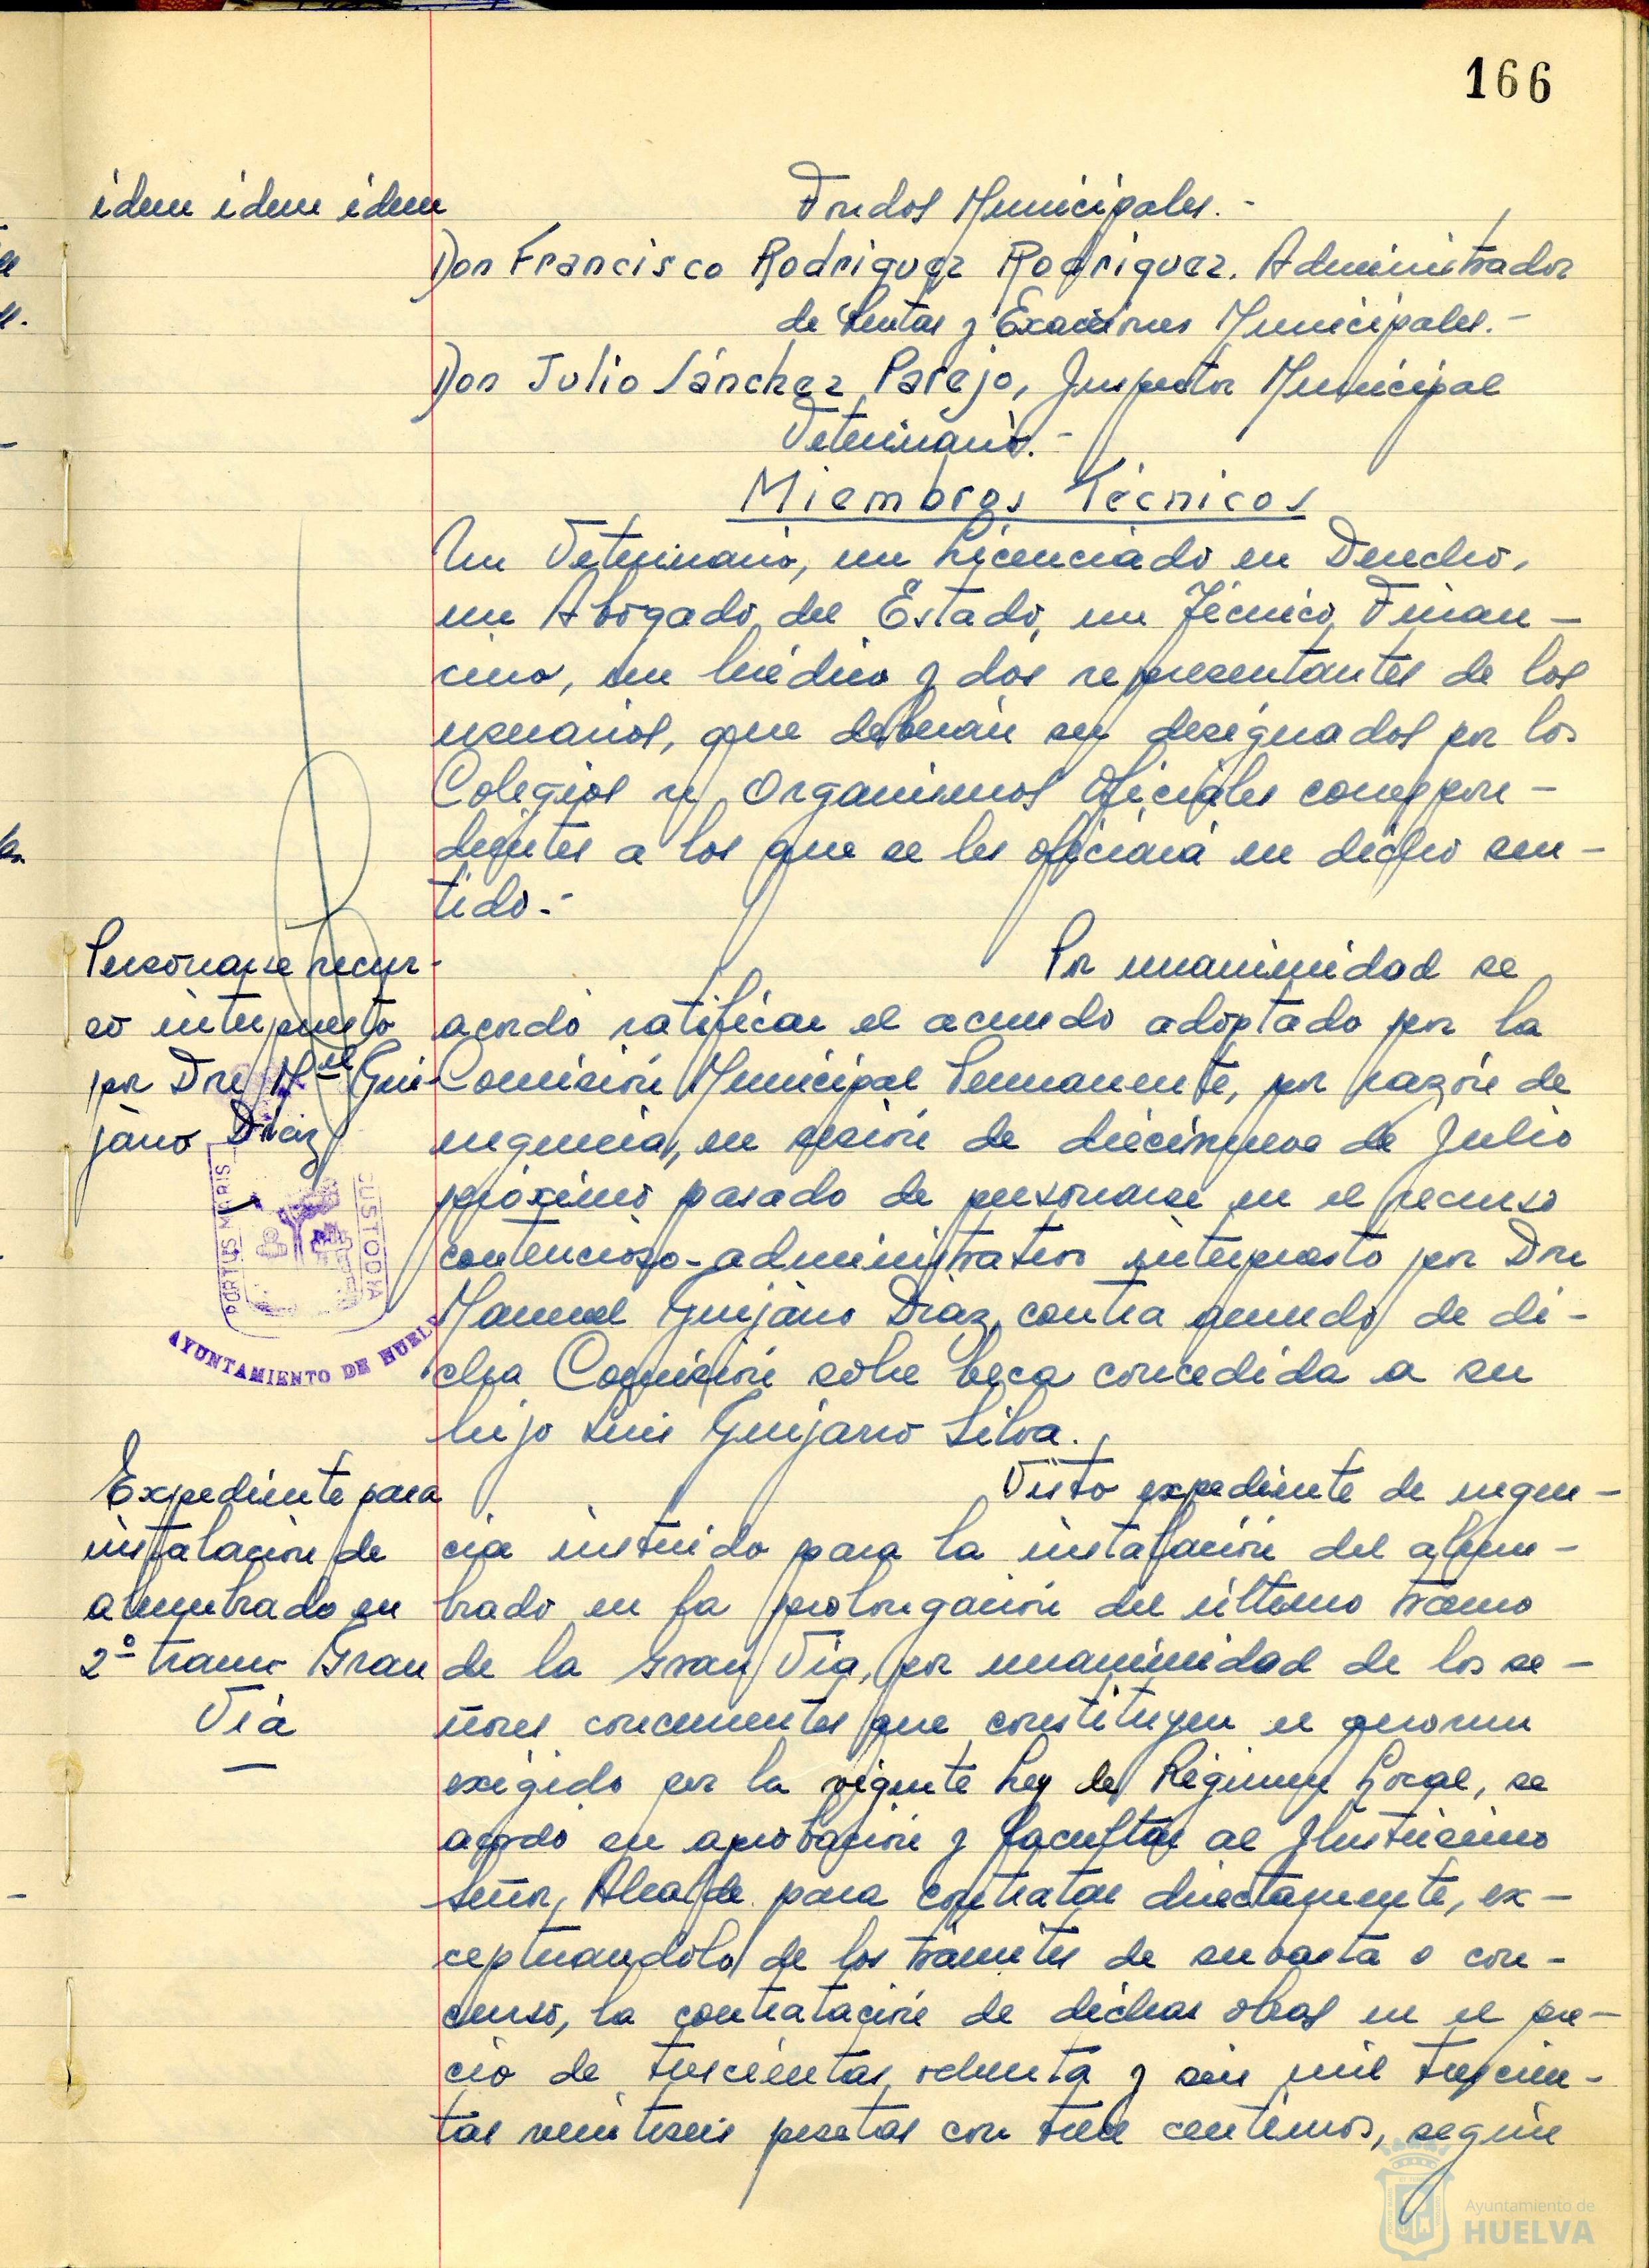 166
idem idem idem
Fondos Municipales.-
Don Francisco Rodriguez Rodriguez. Administrador
de Rentas y Exacciones Municipales.-
Don Julio Sánchez Parejo, Inspector Municipal
Veterinario.-
Miembros Técnicos
Un Veterinario, un Licenciado en Derecho,
un Abogado del Estado, un Técnico Finan-
ciero, un Médico y dos representantes de los
usuarios, que deberán ser designados por los
Colegios u Organismos Oficiales correspon-
dientes a los que se les oficiará en dicho sen-
tido.-
Personarse recur-
so interpuesto
por Don Mel Gui-
jarro Díaz
Por unanimidad se
acordó ratificar el acuerdo adoptado por la
Comisión Municipal Permanente, por razón de
urgencia, en sesión de diecinueve de Julio
próximo pasado de personarse en el recurso
contencioso-administrativo interpuesto por Don
Manuel Guijarro Díaz, contra acuerdo de di-
cha Comisión sobre beca concedida a su
hijo Luis Guijarro Silva.
PORTUS MARIS
CUSTODIA
AYUNTAMIENTO DE HUELV
Expediente para
instalación de
alumbrado en
2º tramo Gran
Vía
Visto expediente de urgen-
cia instruido para la instalación del alum-
brado en la prolongación del último tramo
de la Gran Vía, por unanimidad de los se-
ñores concurrentes que constituyen el quorum
exigido por la vigente Ley de Régimen Local, se
acordó su aprobación y facultar al Ilustrísimo
señor Alcalde para contratar directamente, ex-
ceptuandolo de los trámites de subasta o con-
curso, la contratación de dichas obras en el pre-
cio de trescientas ochenta y seis mil trescien-
tas veintiseis pesetas con trece centimos, según
Ayuntamiento de
HUELVA